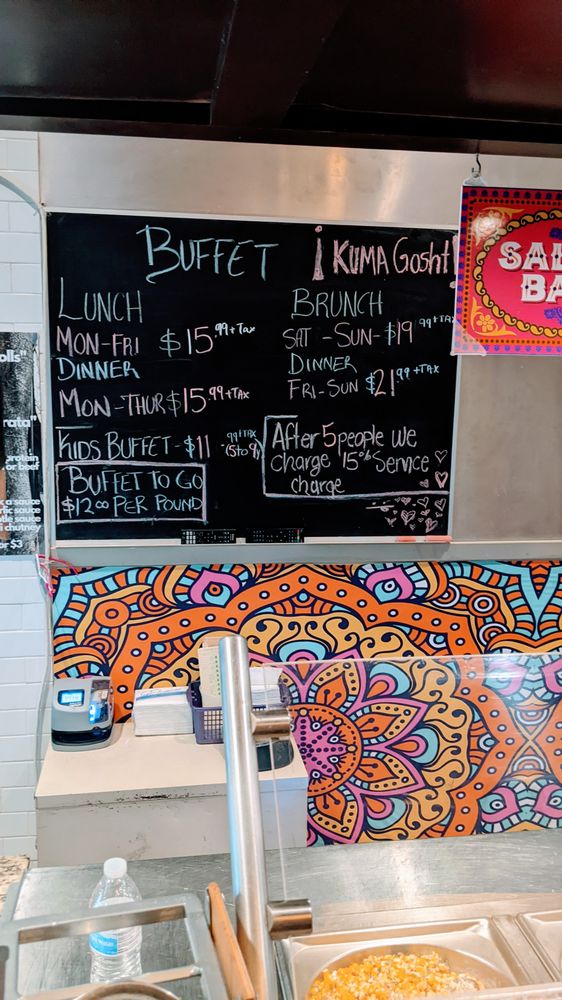 BUFFET
¡ KUMA Gosht!
LUNCH
MON-FRI $15.99+Tax
DINNER
MON-THUR $15.99+TAX
KIDS BUFFET-$11.99+TAX (5 to 9)
BUFFET TO GO
$12.00 PER POUND
BRUNCH
SAT-SUN-$19 99+TAX
DINNER
FRI-SUN $21 99+TAX
After 5 people we
charge 15% Service
charge
olls"
rata"
protein
or beef
sauce
rlic sauce
tle sauce
i chutney
or $3
SAL
BA